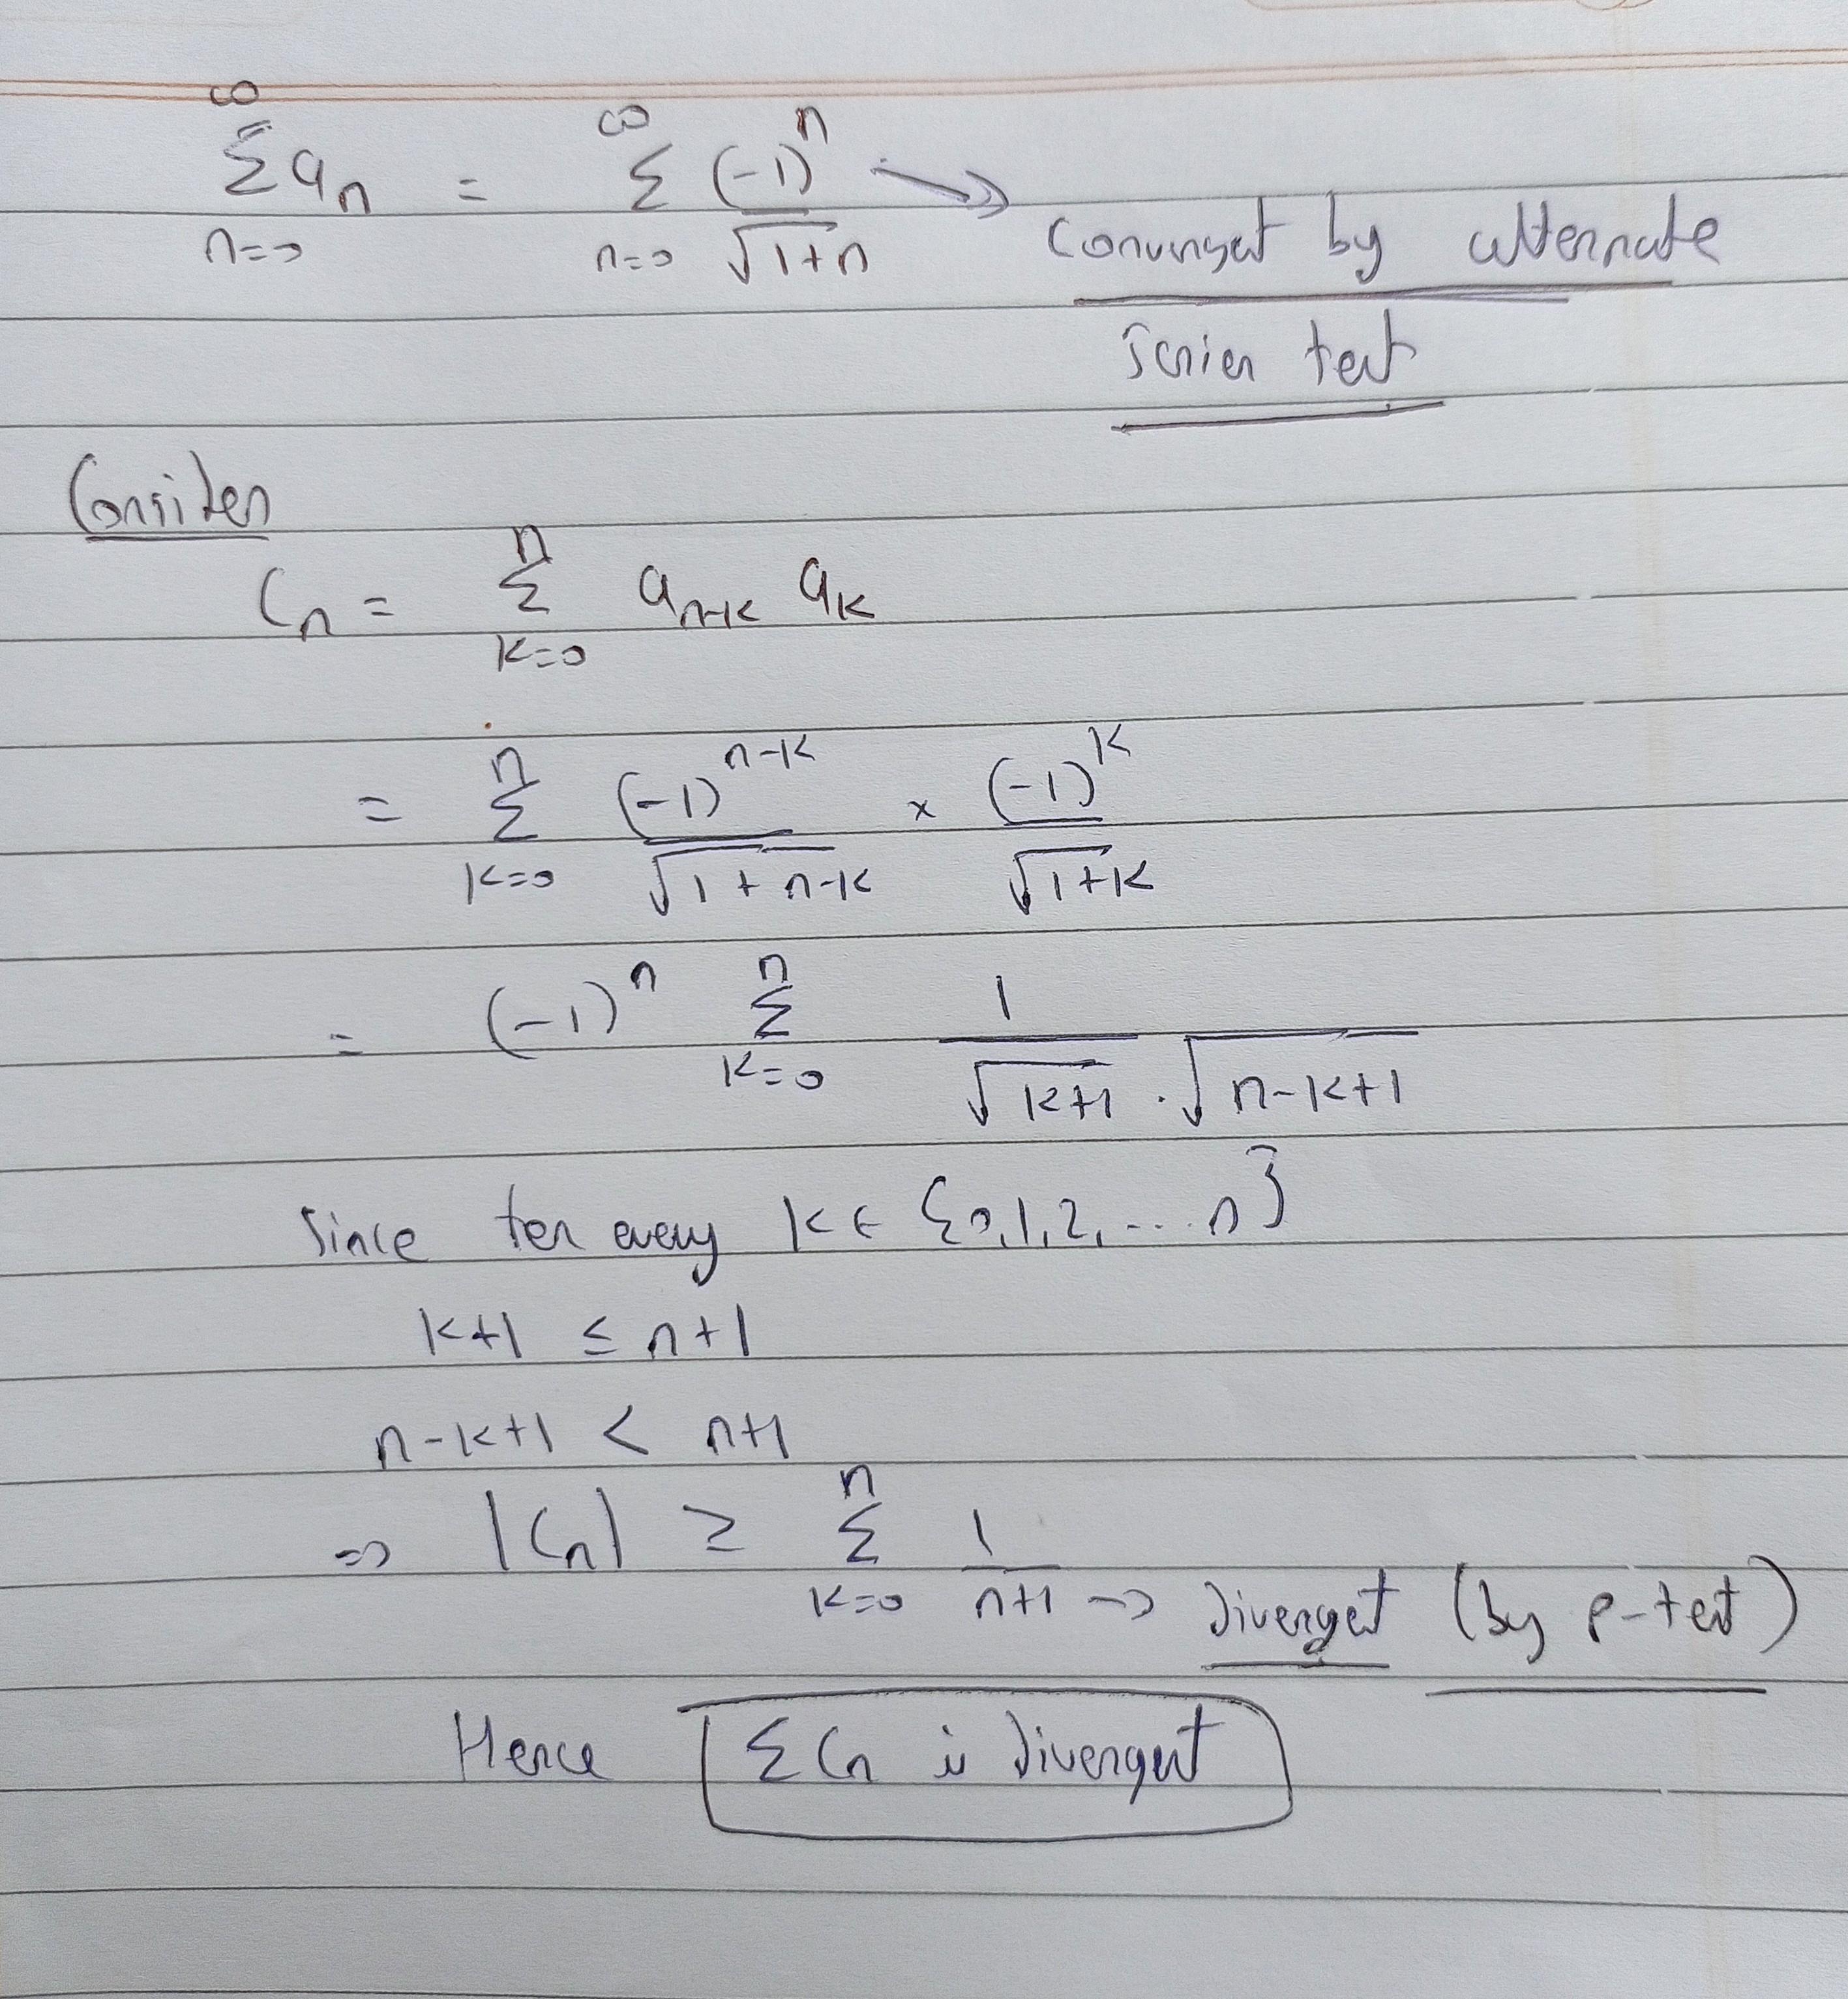 ∞ ∞
Σ a_n = Σ (-1)^n / √(1+n) → Convergent by alternate
n=0 n=0
Series test
Consider
C_n = Σ_{k=0}^{n} a_{n-k} a_k
= Σ_{k=0}^{n} (-1)^{n-k} / √(1+n-k) × (-1)^k / √(1+k)
= (-1)^n Σ_{k=0}^{n} 1 / (√(k+1) · √(n-k+1))
Since for every k ∈ {0,1,2,...n}
k+1 ≤ n+1
n-k+1 < n+1
⇒ |C_n| ≥ Σ_{k=0}^{n} 1/(n+1) → divergent (by p-test)
Hence ΣC_n is divergent